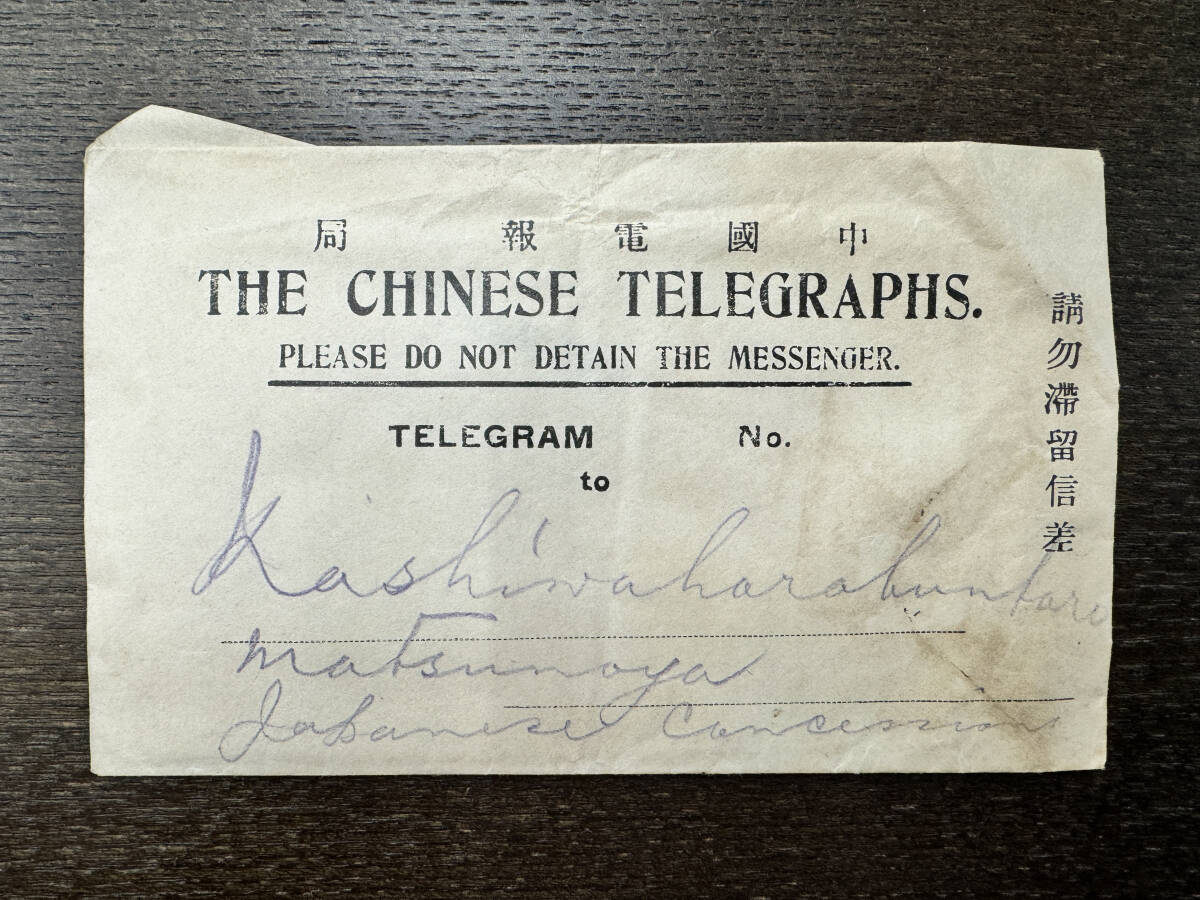 中國電報局
THE CHINESE TELEGRAPHS.
PLEASE DO NOT DETAIN THE MESSENGER.
TELEGRAM No.
to
Kashiwaharabuntaro
Matsunoya
Japanese Concession
請勿滯留信差